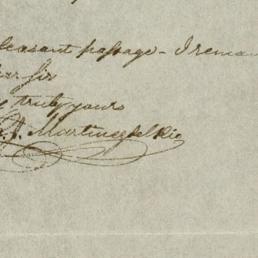 leasant passage - I remain
Sir
truly yours
J. Martinez del Rio